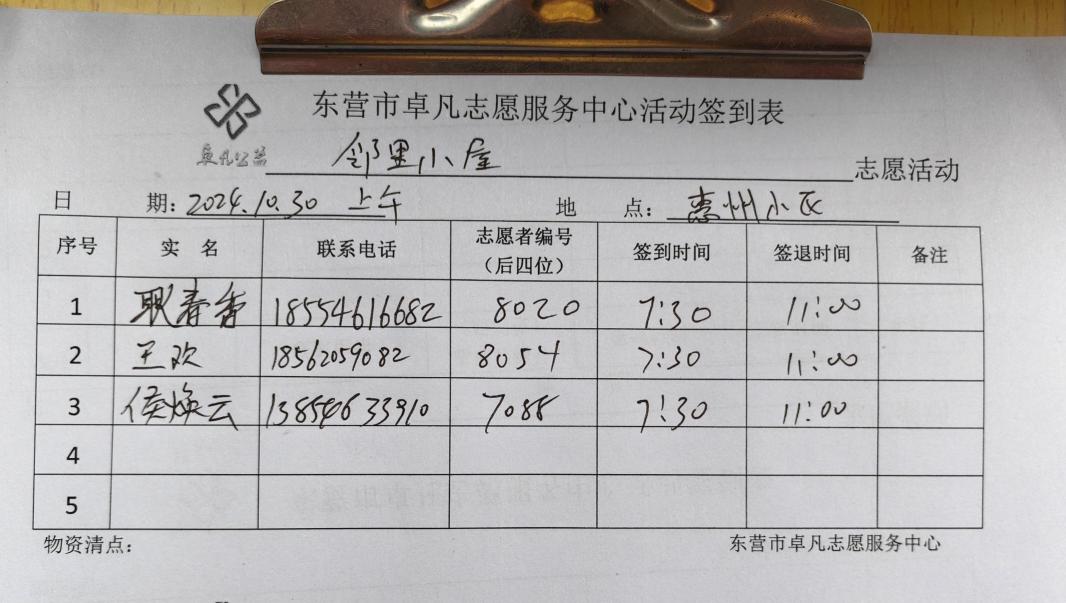 东营市卓凡志愿服务中心活动签到表
卓凡公益
邻里小屋 志愿活动
日 期: 2024.10.30 上午 地 点: 惠州小区
序号 实 名 联系电话 志愿者编号(后四位) 签到时间 签退时间 备注
1 耿春香 18554616682 8020 7:30 11:00
2 王欢 18562059082 8054 7:30 11:00
3 侯焕云 13854633910 7088 7:30 11:00
4
5
物资清点: 东营市卓凡志愿服务中心